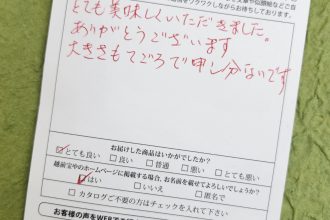 をワクワクしながらお待ちしております。
とても美味しくいただきました。
ありがとうございます
大きさもてごろで申し分ないです
お届けした商品はいかがでしたか?
☑とても良い □良い □普通 □悪い □とても悪い
越前宝やのホームページに掲載する場合、お名前を載せてよろしいでしょうか?
☑はい □いいえ □匿名で
□カタログご不要の方はチェックを入れて下さい
お客様の声をWEBで